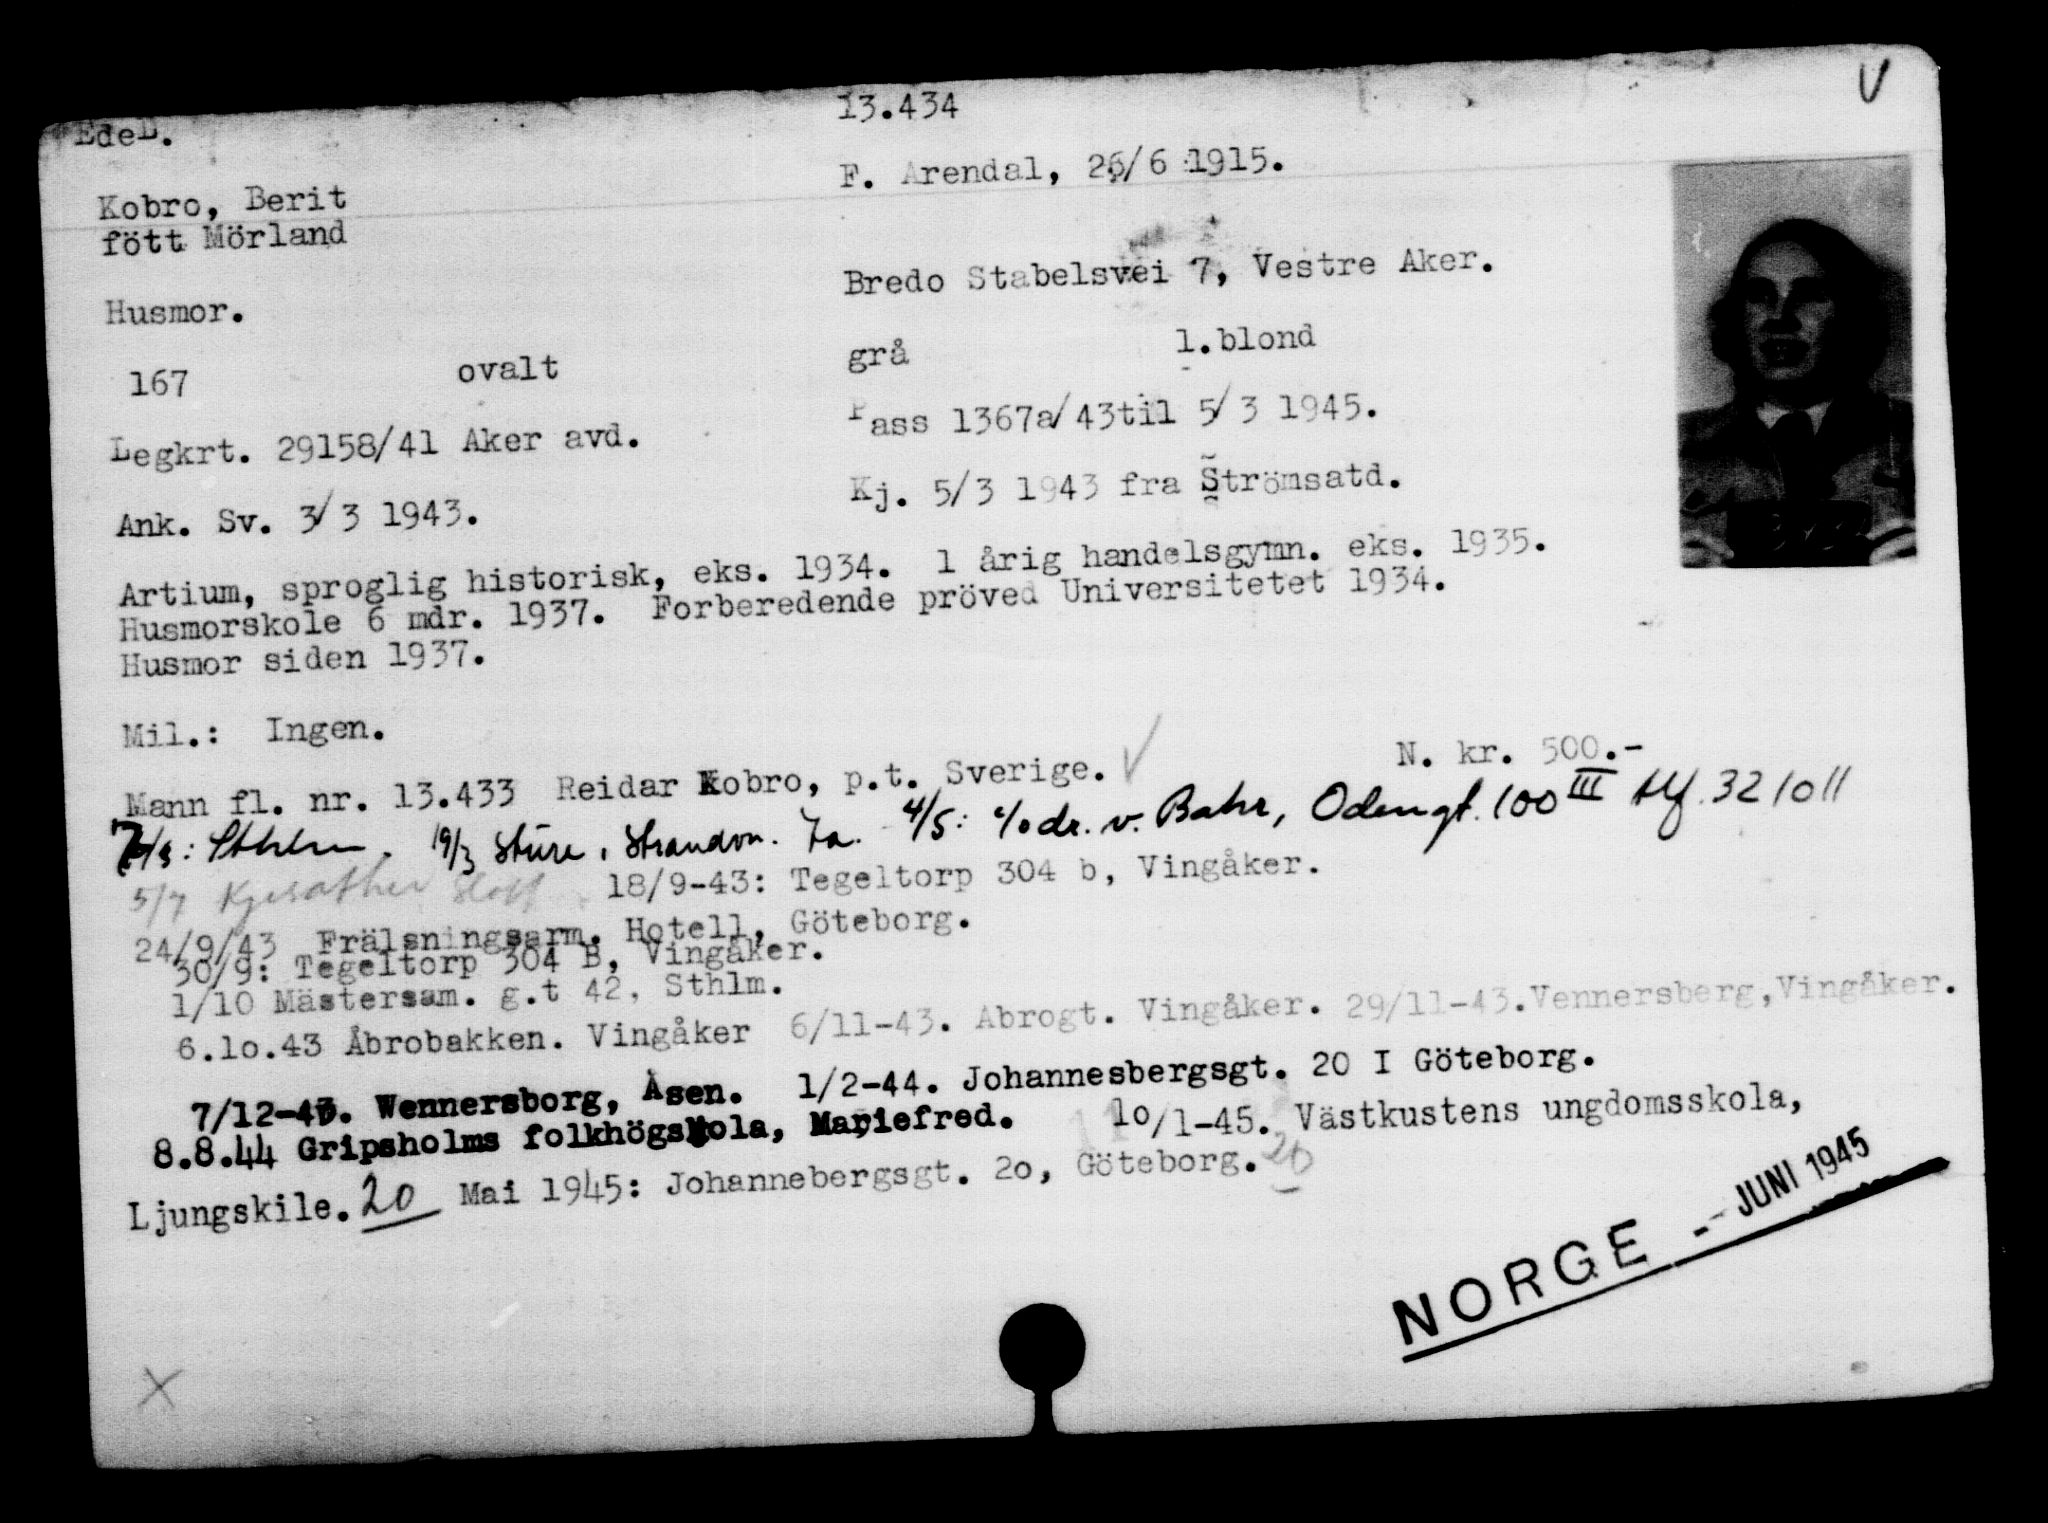 EdeL. 13.434 V
F. Arendal, 26/6 1915.
Kobro, Berit
fött Mörland
Bredo Stabelsvei 7, Vestre Aker.
Husmor.
167 ovalt grå l.blond
Legkrt. 29158/41 Aker avd. Pass 1367a/43til 5/3 1945.
Ank. Sv. 3/3 1943. Kj. 5/3 1943 fra Strömsatd.
Artium, sproglig historisk, eks. 1934. 1 årig handelsgymn. eks. 1935.
Husmorskole 6 mdr. 1937. Forberedende pröved Universitetet 1934.
Husmor siden 1937.
Mil.: Ingen.
Mann fl. nr. 13.433 Reidar Kobro, p.t. Sverige. V N. kr. 500.-
Sthlm. 19/3 Sture, Strandvn. 7a. 4/5: c/o dr. v. Bahr, Odengt. 100 III tlf. 321011
5/7 18/9-43: Tegeltorp 304 b, Vingåker.
24/9/43 Frälsningsarm. Hotell, Göteborg.
30/9: Tegeltorp 304 B, Vingåker.
1/10 Mästersam. g.t 42, Sthlm.
6.10.43 Åbrobakken. Vingåker 6/11-43. Abrogt. Vingåker. 29/11-43.Vennersberg,Vingåker.
7/12-43. Wennersborg, Åsen. 1/2-44. Johannesbergsgt. 20 I Göteborg.
8.8.44 Gripsholms folkhögskola, Mariefred. 10/1-45. Västkustens ungdomsskola,
Ljungskile. 20 Mai 1945: Johannebergsgt. 20, Göteborg. 20
NORGE - JUNI 1945
X